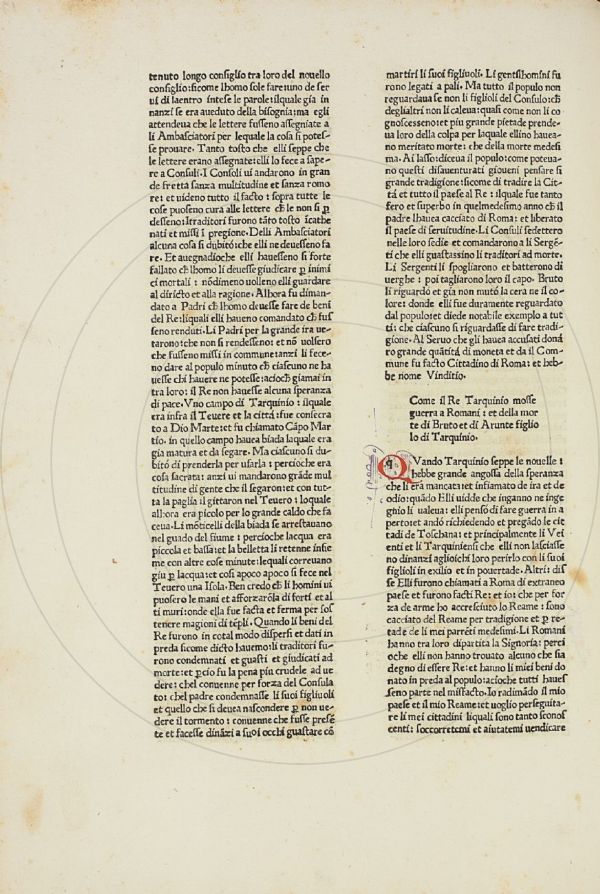 tenuto longo consiglio tra loro del nouello
consiglio: sicome lhomo sole fare: uno de ser
ui di laentro intese le parole: ilquale gia in
nanzi se era aueduto della bisognia: ma egli
attendeua che le lettere fusseno assegniate a
li Ambasciatori per lequale la cosa si potes-
se prouare. Tanto tosto che elli seppe che
le lettere erano assegnate: elli lo fece a sape-
re a Consuli. I Consoli ui andarono in gran
de fretta sanza multitudine et sanza romo
re: et uideno tutto il facto: sopra tutte le
cose puoseno cura alle lettere che non si p̄
desseno: Itraditori furono tāto tosto īcathe
nati et missi ī pregione. Delli Ambasciatori
alcuna cosa si dubitò: che elli ne deuesseno fa
re. Et auegnadioche elli hauesseno si forte
fallato ch̄ lhomo li deuesse giudicare p̄ inimi
ci mortali: nōdimeno uolleno elli guardare
al diricto et alla ragione. Alhora fu diman-
dato a Padri ch̄ lhomo deuesse fare de beni
del Re: liquali elli haueno comandato ch̄ fus
seno renduti. Li Padri per la grande ira ue-
tarono: che non si rendesseno: et nō uolsero
che fusseno missi in commune: anzi li fece-
no dare al populo minuto ch̄ ciascuno ne ha
uesse chi hauere ne potesse: acioch̄ giamai in
tra loro: il Re non hauesse alcuna speranza
di pace. Vno campo di Tarquinio: ilquale
era infra il Teuere et la cittá: fue consecra
to a Dio Marte: et fu chiamato Cāpo Mar
tio. in quello campo hauea biada laquale era
gia matura et da segare. Ma ciascuno si du-
bitó di prenderla per usarla: percioche era
cosa sacrata: anzi ui mandarono grāde mul
titudine di gente che il segaron: et con tut-
ta la paglia il gittaron nel Teuero: loquale
allhora era picolo per lo grande caldo che fa
ceua. Li mōticelli della biada se arrestauano
nel guado del fiume: percioche lacqua era
piccola et bassa: et la belletta li retenne insie
me con altre cose minute: lequali correuano
giu p̄ lacqua: et cosi apoco apoco si fece nel
Teuero una Isola. Ben credo ch̄ li homini ui
puosero le mani et afforzarōla di forti et al
ti muri: onde ella fue facta et ferma per sos
tenere magioni di tēpli. Quando li beni del
Re furono in cotal modo dispersi et dati in
preda sicome dicto hauemo: li traditori fu-
rono condemnati et guasti et giudicati ad
morte: et p̄cio fu la pena piu crudele ad ue
dere: chel conuenne per forza del Consula
to: chel padre condemnasse li suoi figliuoli
et quello che si deuea nascondere p̄ non ue-
dere il tormento: conuenne che fusse presē
te et facesse dināzi a suoi occhi guastare cō
martiri li suoi figliuoli. Li gentilhomini fu
rono legati a pali. Ma tutto il populo non
reguardaua se non li figlioli del Consulo: ch̄
deglialtri non li caleua: quasi come non li co
gnoscesseno: et piu grande pietade prende-
ua loro della colpa per laquale ellino hauea-
no meritato morte: che della morte medesi
ma. Ai lasso: diceua il populo: come poteua-
no questi disauenturati gioueni pensare si
grande tradigione: sicome di tradire la Cit-
tá et tutto il paese al Re: ilquale fue tanto
fero et superbo in quelmedesimo anno ch̄ il
padre lhauea cacciato di Roma: et liberato
il paese di seruitudine. Li Consuli sedettero
nelle loro sedie et comandarono a li Sergē-
ti che elli guastassino li traditori ad morte.
Li Sergenti li spogliarono et batterono di
uerghe: poi tagliarono loro il capo. Bruto
li riguardó et gia non mutó la cera ne il co-
lore: donde elli fue duramente reguardato
dal populo: et diede notabile exemplo a tut
ti: che ciascuno si riguardasse di fare tradi-
gione. Al Seruo che gli hauea accusati doná
ro grande quātitá di moneta et da il Com-
mune fu facto Cittadino di Roma: et heb-
be nome Vinditio.
Come il Re Tarquinio mosse
guerra a Romani: et della mor
te di Bruto et di Arunte figlio
lo di Tarquinio.
QVando Tarquinio seppe le nouelle:
hebbe grande angossa della speranza
che li era mancata: et infiamato de ira et de
odio: quādo Elli uidde che inganno ne inge
ghio li ualeua: elli pensò di fare guerra in a
perto: et andó richiedendo et pregādo le cit
tadi de Toschana: et principalmente li Vei
enti et li Tarquiniensi che elli non lasciasse
no dinanzi aglioichi loro perirlo con li suoi
figlioli in exilio et in pouertade. Altri: dis
se Elli furono chiamati a Roma di extraneo
paese et furono facti Re: et io: che per for
za de arme ho accresciuto lo Reame: sono
cacciato del Reame per tradigione et p̄ re-
tade de li mei parrēti medesimi. Li Romani
hanno tra loro dipartita la Signoria: perci
oche elli non hanno trouato alcuno che sia
degno di essere Re: et hanno li miei beni do
nato in preda al populo: acioche tutti haues
seno parte nel misfacto. Io radimādo il mio
paese et il mio Reame: et uoglio perseguita-
re li mei cittadini liquali sono tanto sconos
centi: soccorretemi et aiutatemi uendicare